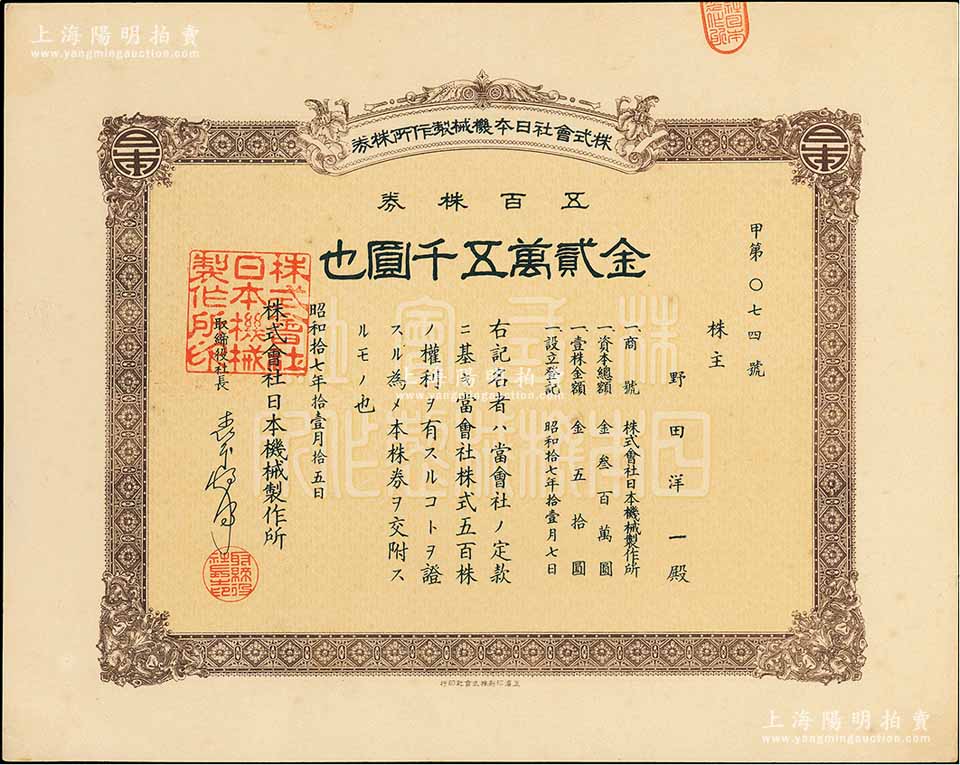 上海陽明拍賣
www.yangmingauction.com
株式會社日本機械製作所株券
五百株券
金貳萬五千圓也
甲第〇七四號
株主
野田洋一殿
一商號 株式會社日本機械製作所
一資本總額 金叁百萬圓
一壹株金額 金五拾圓
一設立登記 昭和拾七年拾壹月七日
右記名者ハ當會社ノ定款
ニ基キ當會社株式五百株
ノ權利ヲ有スルコトヲ證
スル為メ本株券ヲ交附ス
ルモノ也
昭和拾七年拾壹月拾五日
株式會社日本機械製作所
取締役社長
株式會社
日本機械
製作所印
取締役
社長印
株式會社
日本機械製作所
上海陽明拍賣
www.yangmingauction.com
上海陽明拍賣
www.yangmingauction.com